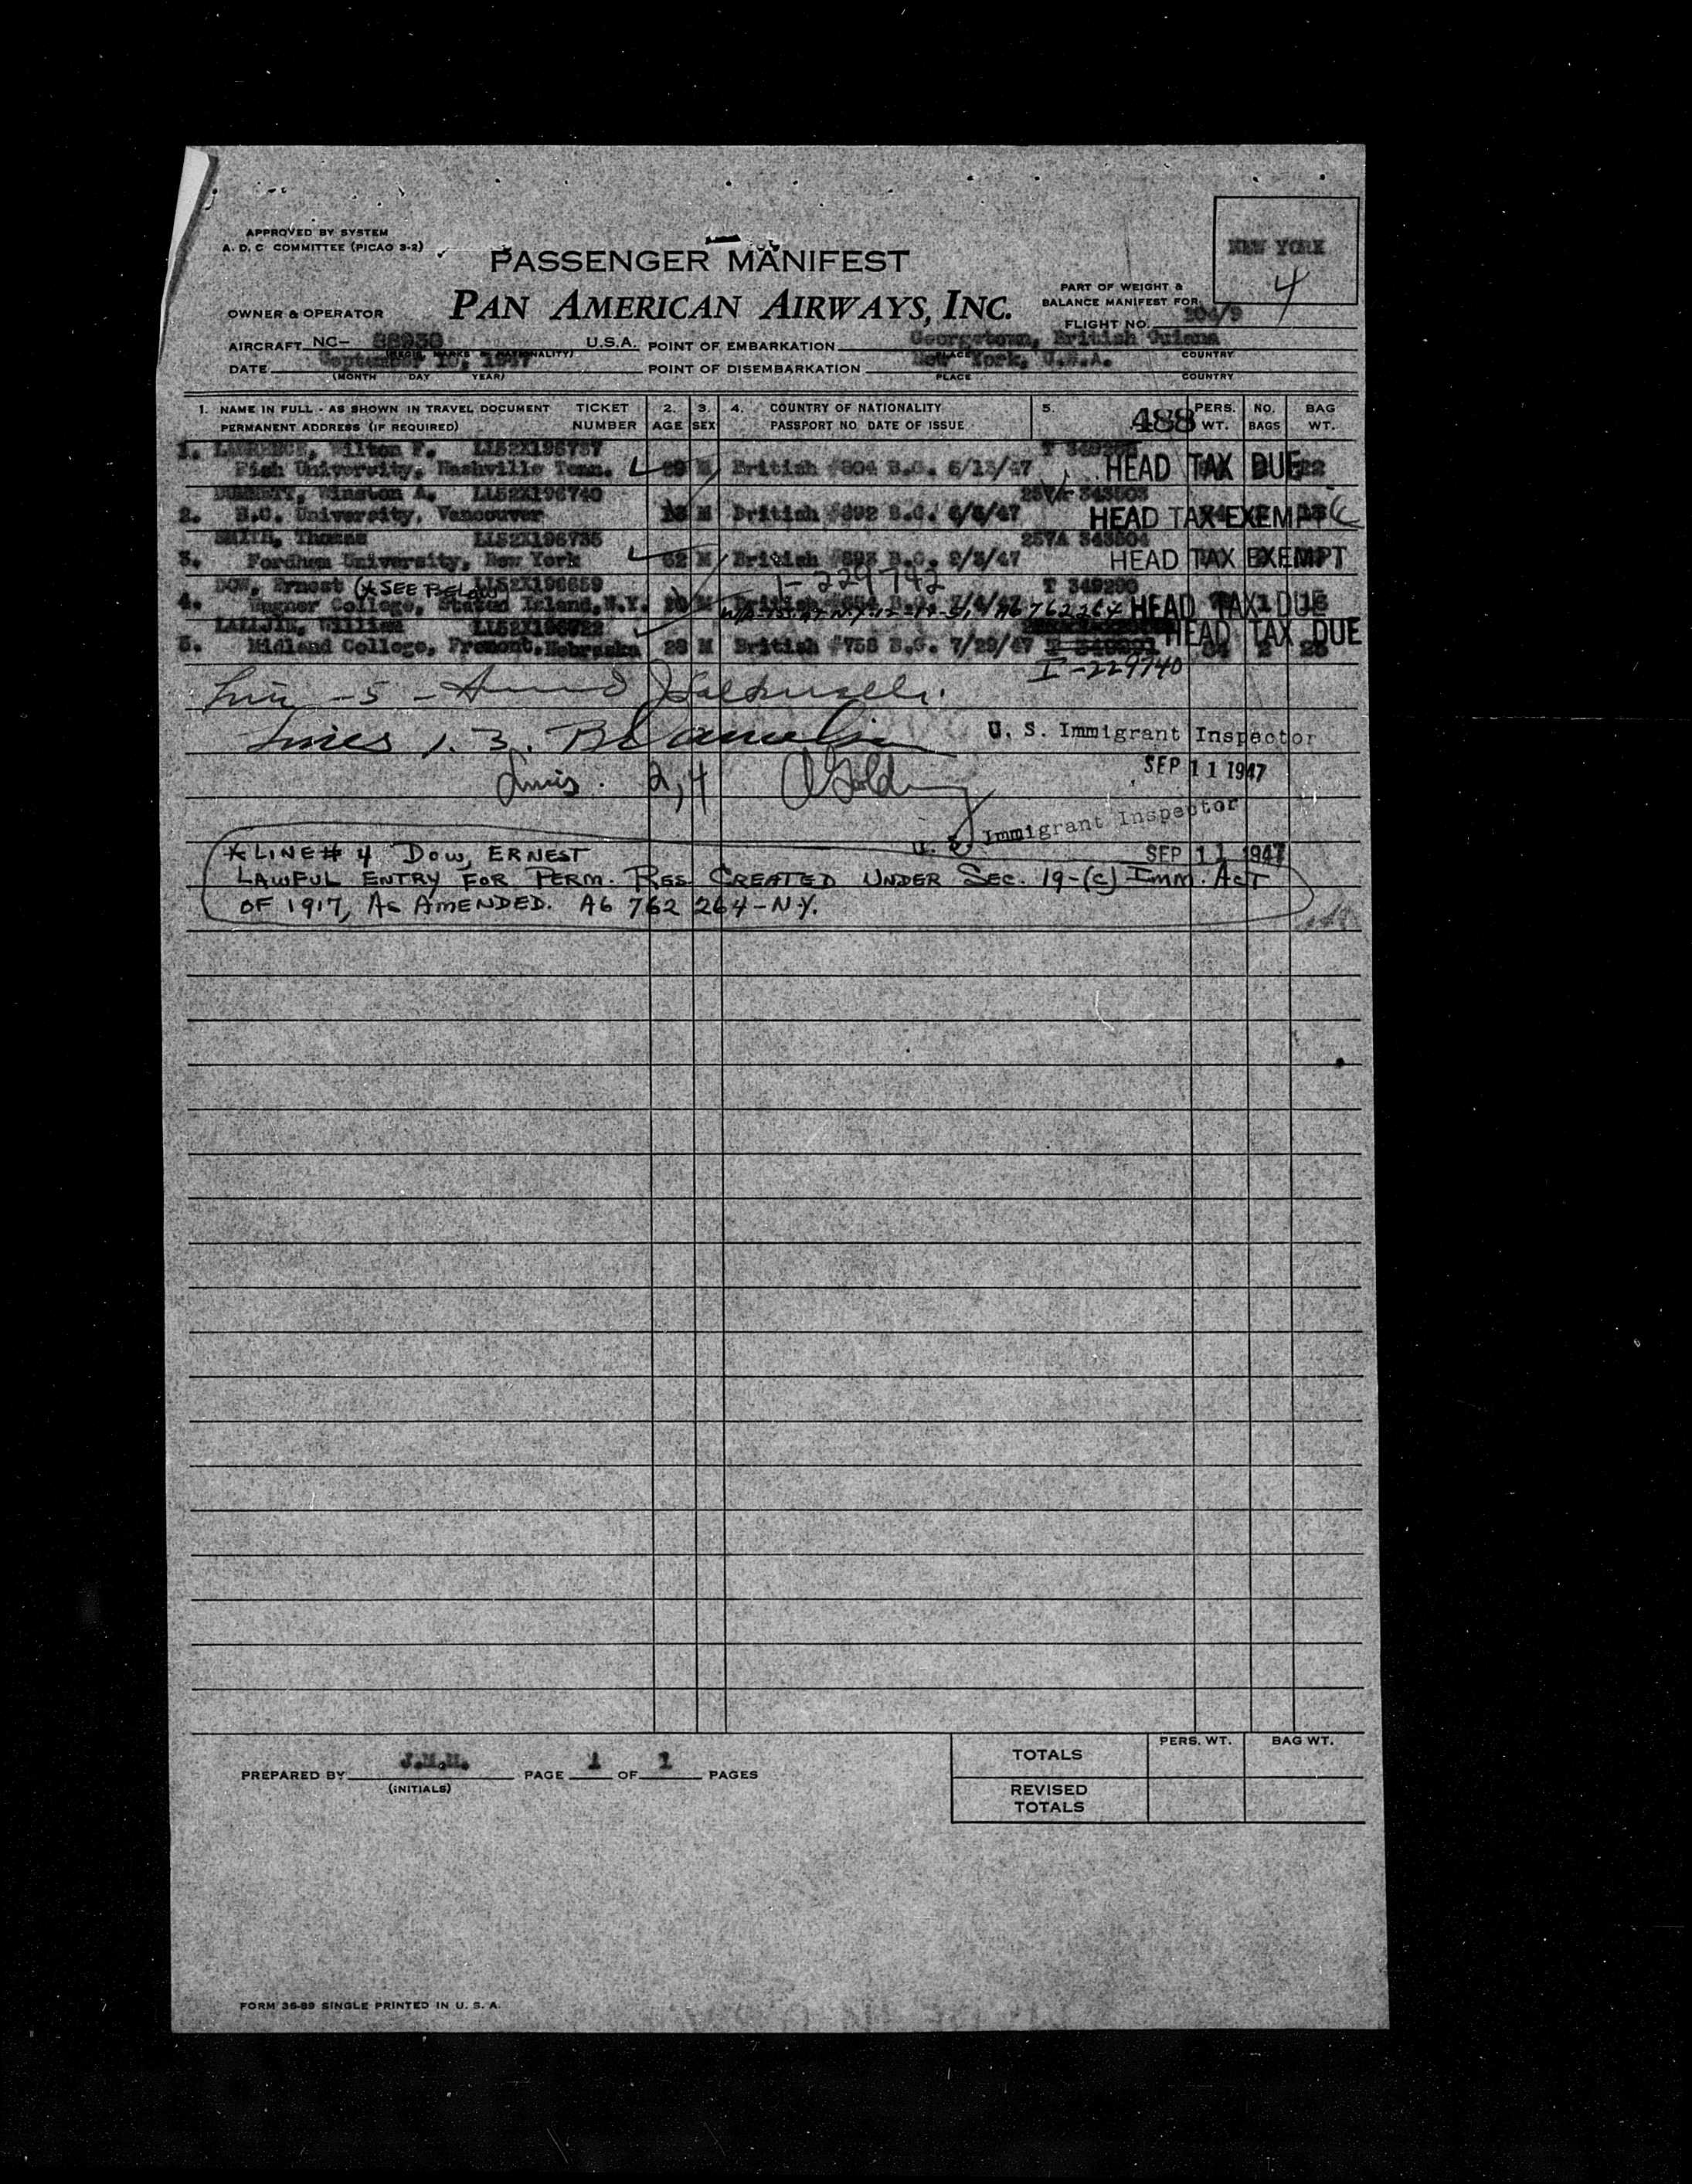 APPROVED BY SYSTEM
A. D. C COMMITTEE (PICAO 3-2)
PASSENGER MANIFEST
NEW YORK
4
OWNER & OPERATOR
PAN AMERICAN AIRWAYS, INC.
PART OF WEIGHT &
BALANCE MANIFEST FOR
FLIGHT NO. 204/9
AIRCRAFT NC- U.S.A. POINT OF EMBARKATION Georgetown, British Guiana
(REGIS. MARKS & NATIONALITY) PLACE COUNTRY
DATE September 10, 1947 POINT OF DISEMBARKATION New York, U.S.A.
(MONTH DAY YEAR) PLACE COUNTRY
1. NAME IN FULL - AS SHOWN IN TRAVEL DOCUMENT TICKET 2. 3. 4. COUNTRY OF NATIONALITY 5. 488 PERS. NO. BAG
PERMANENT ADDRESS (IF REQUIRED) NUMBER AGE SEX PASSPORT NO. DATE OF ISSUE WT. BAGS WT.
1. LAWRENCE, Wilton F. LL52X196737
Fisk University, Nashville Tenn. 29 M British #804 B.G. 6/13/47 HEAD TAX DUE 22
Winston A. LL52X196740 257A 343503
2. B.C. University, Vancouver M British B.G. HEAD TAX EXEMPT
SMITH, Thomas LL52X196735 257A 343504
3. Fordham University, New York M British B.G. HEAD TAX EXEMPT
DOW, Ernest (* SEE BELOW) LL52X196659 I-229742 T 349290
4. Wagner College, Stated Island, N.Y. M A6 762 264 HEAD TAX DUE
LALLJIE, William LL52X196722
5. Midland College, Fremont, Nebraska 28 M British #758 B.G. 7/29/47 HEAD TAX DUE
I-229740
Line -5-
Lines 1. 3. U. S. Immigrant Inspector
SEP 11 1947
Lines. 2, 4
U. S. Immigrant Inspector
SEP 11 1947
* LINE # 4 DOW, ERNEST
LAWFUL ENTRY FOR PERM. RES. CREATED UNDER SEC. 19-(C) IMM. ACT
OF 1917, AS AMENDED. A6 762 264-N.Y.
PREPARED BY J.M.M. PAGE 1 OF 1 PAGES
(INITIALS)
TOTALS PERS. WT. BAG WT.
REVISED
TOTALS
FORM 36-89 SINGLE PRINTED IN U. S. A.